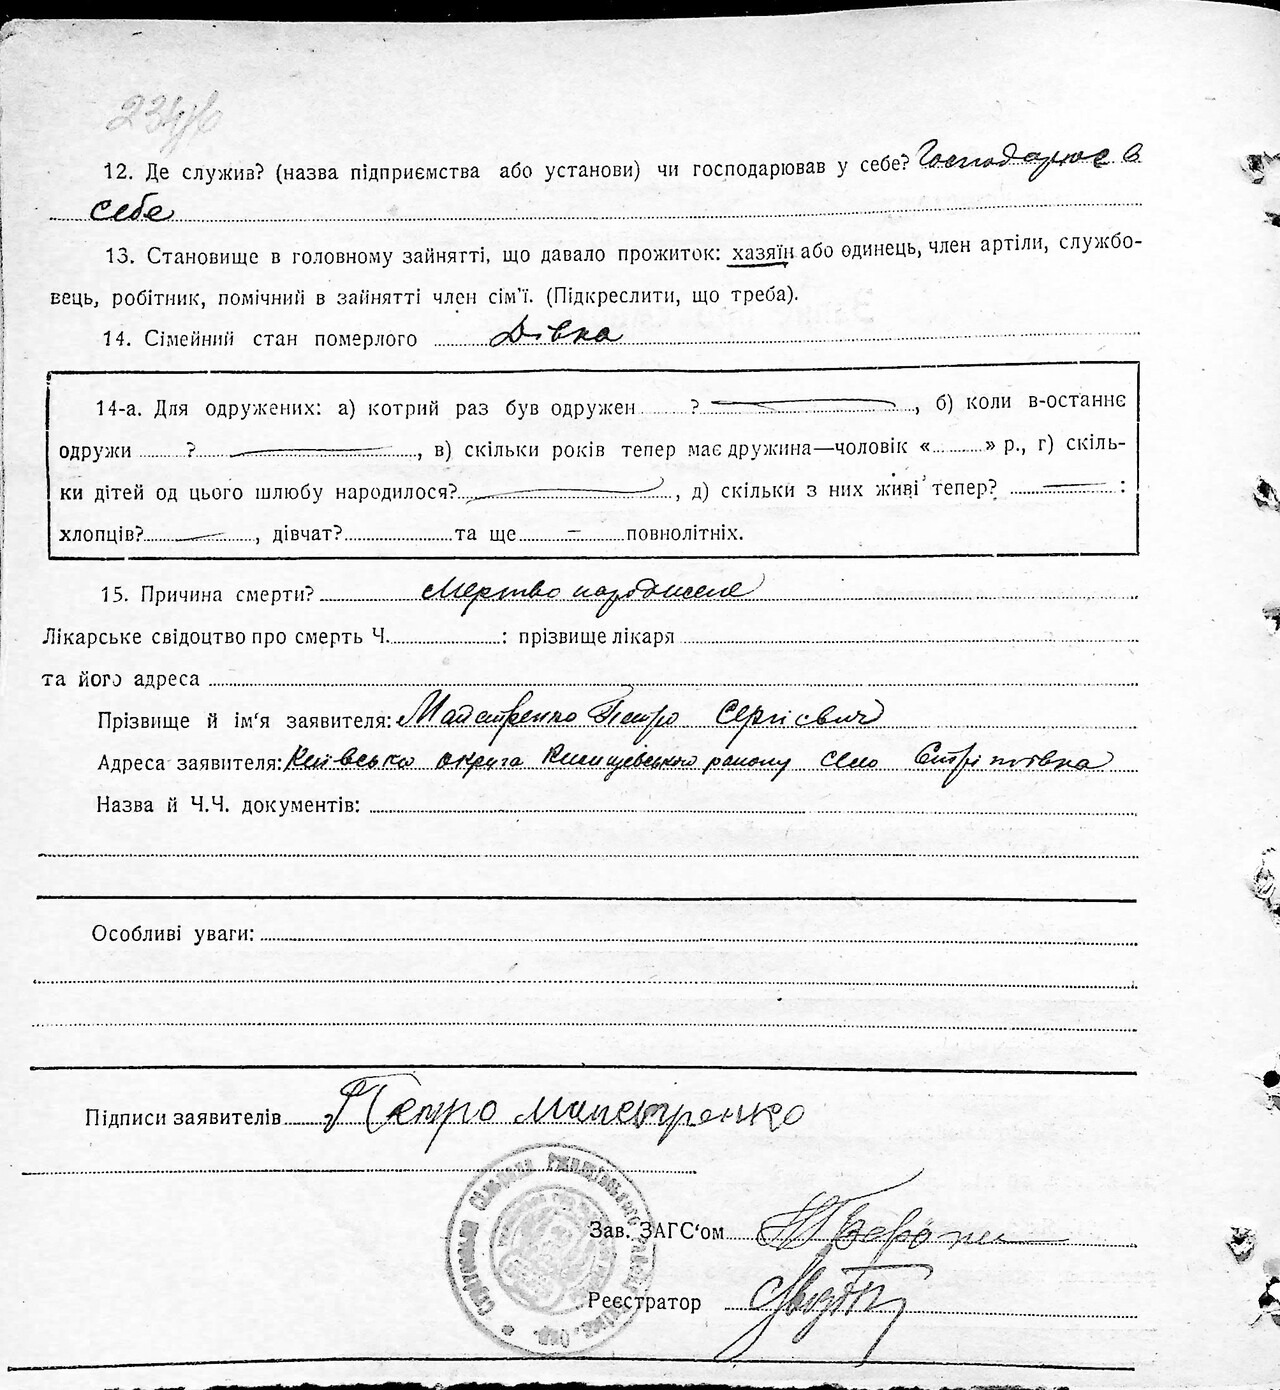 234/6
12. Де служив? (назва підприємства або установи) чи господарював у себе? Господарює в
себе
13. Становище в головному зайнятті, що давало прожиток: хазяїн або одинець, член артіли, службо-
вець, робітник, помічний в зайнятті член сім'ї. (Підкреслити, що треба).
14. Сімейний стан померлого Дівка
14-а. Для одружених: а) котрий раз був одружен ? , б) коли в-останнє
одружи ? , в) скільки років тепер має дружина—чоловік « » р., г) скіль-
ки дітей од цього шлюбу народилося? , д) скільки з них живі тепер? :
хлопців? , дівчат? та ще повнолітніх.
15. Причина смерти? Мертво народжене
Лікарське свідоцтво про смерть Ч. : прізвище лікаря
та його адреса
Прізвище й ім'я заявителя: Майстренко Петро Сергієвич
Адреса заявителя: Київська округа району село
Назва й Ч.Ч. документів:
Особливі уваги:
Підписи заявителів Петро Майстренко
Зав. ЗАГС'ом
Реєстратор